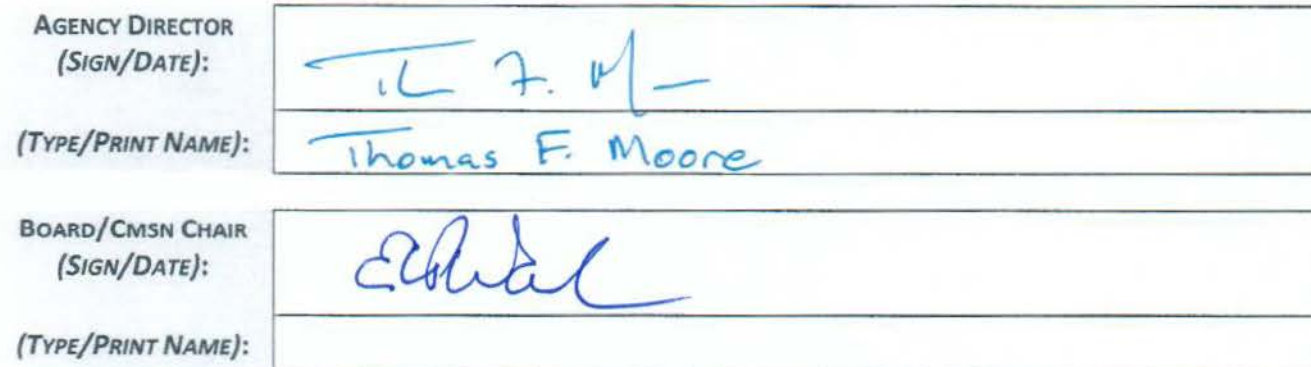 AGENCY DIRECTOR
(SIGN/DATE):
(TYPE/PRINT NAME): Thomas F. Moore
BOARD/CMSN CHAIR
(SIGN/DATE):
(TYPE/PRINT NAME):